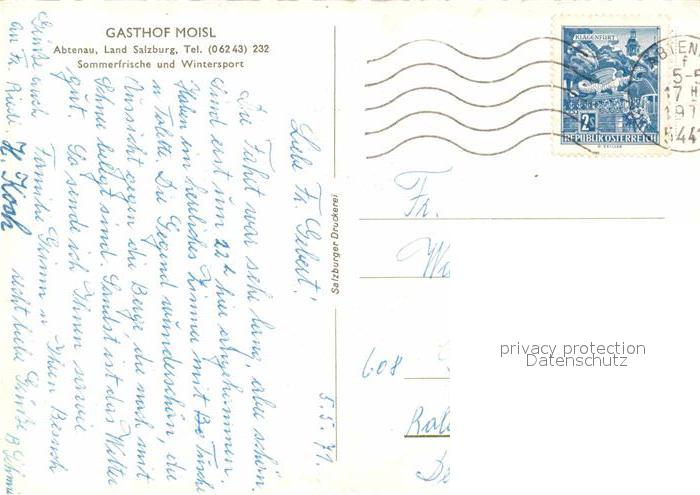 GASTHOF MOISL
Abtenau, Land Salzburg, Tel. (06243) 232
Sommerfrische und Wintersport
5.5.71.
Liebe Fr. Gebert!
Die Fahrt war sehr lang, aber schön.
Sind erst um 22 h hier angekommen.
Haben ein herrliches Zimmer mit Dusche
u Toilette. Die Gegend wunderschön, die
Aussicht gegen die Berge die noch mit
Schnee belegt sind. Sonst ist das Wetter
gut. So sende ich Ihnen sowie
Familie Grimm u Ihrem Besuch
recht liebe Grüße
Grüße auch
an Fr.
H. Koch
Salzburger Druckerei
KLAGENFURT
2S
REPUBLIK ÖSTERREICH
ABTENA
5-5
17 H
197
5441
Fr.
608
privacy protection
Datenschutz